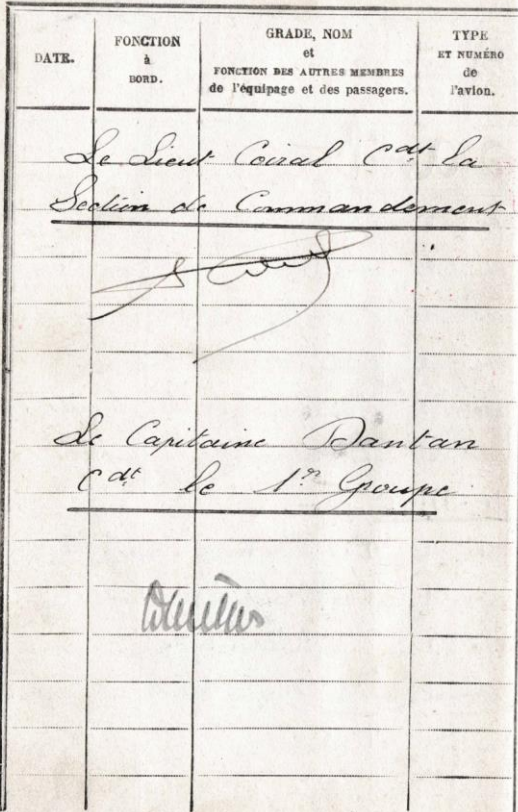 DATE.
FONCTION
à
BORD.
GRADE, NOM
et
FONCTION DES AUTRES MEMBRES
de l'équipage et des passagers.
TYPE
ET NUMÉRO
de
l'avion.
Le Lieut Coiral Cdt la
Section de Commandement
Le Capitaine Dantan
Cdt le 1er Groupe